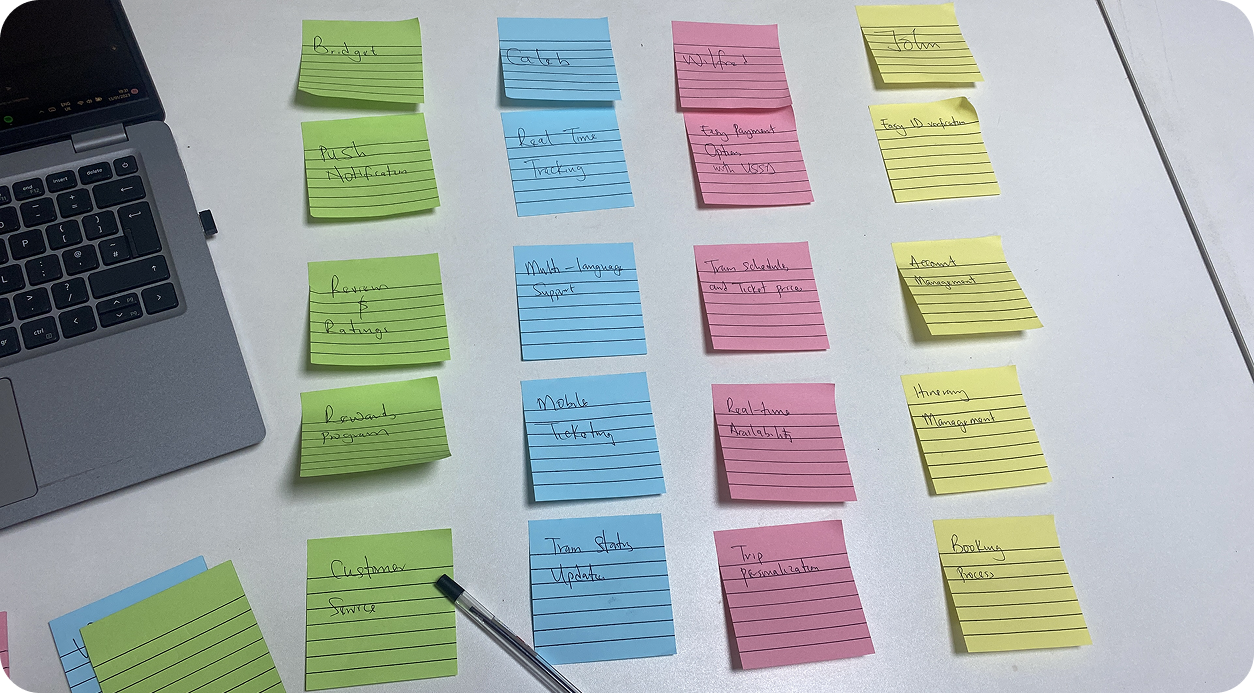 Bridget
Push
Notification
Review
&
Ratings
Rewards
Program
Customer
Service
Caleb
Real Time
Tracking
Multi-language
Support
Mobile
Ticketing
Train Status
Update
Wilfred
Easy Payment
Option
with USSD
Train Schedules
and Ticket prices
Real-time
Availability
Trip
Personalization
John
Easy ID verification
Account
Management
Itinerary
Management
Booking
Process
end
insert
delete
ctrl
ENG
UK